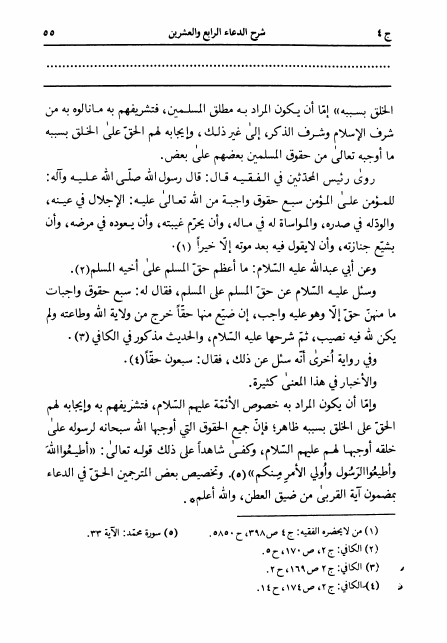 ج ٤ شرح الدعاء الرابع والعشرين ٥٥
الخلق بسببه» إمّا أن يكون المراد به مطلق المسلمين، فتشريفهم به مانالوه به من
شرف الإسلام وشرف الذكر، إلى غير ذلك، وإيجابه لهم الحقّ على الخلق بسببه
ما أوجبه تعالى من حقوق المسلمين بعضهم على بعض.
روى رئيس المحدّثين في الفقيه قال: قال رسول الله صلّى الله عليه وآله:
للمؤمن على المؤمن سبع حقوق واجبة من الله تعالى عليه: الإجلال في عينه،
والودّله في صدره، والمواساة له في ماله، وأن يحرّم غيبته، وأن يعوده في مرضه، وأن
يشيّع جنازته، وأن لايقول فيه بعد موته إلّا خيراً (١).
وعن أبي عبدالله عليه السّلام: ما أعظم حقّ المسلم على أخيه المسلم(٢).
وسئل عليه السّلام عن حقّ المسلم على المسلم، فقال له: سبع حقوق واجبات
ما منهنّ حقّ إلّا وهو عليه واجب، إن ضيّع منها حقّاً خرج من ولاية الله وطاعته ولم
يكن لله فيه نصيب، ثمّ شرحها عليه السّلام، والحديث مذكور في الكافي (٣).
وفي رواية أخرى أنّه سئل عن ذلك، فقال: سبعون حقّاً(٤).
والأخبار في هذا المعنى كثيرة.
وإمّا أن يكون المراد به خصوص الأئمّة عليهم السّلام، فتشريفهم به وإيجابه لهم
الحقّ على الخلق بسببه ظاهر؛ فإنّ جميع الحقوق التي أوجبها الله سبحانه لرسوله على
خلقه أوجبها لهم عليهم السّلام، وكفى شاهداً على ذلك قوله تعالى: «أطيعُوااللهَ
وأطيعُواالرّسُول وأولي الأمر مِنكم»(٥). وتخصيص بعض المترجمين الحقّ في الدعاء
بمضمون آية القربى من ضيق العطن، والله أعلم.
(١) من لايحضره الفقيه: ج ٤ ص ٣٩٨، ح ٥٨٥٠. (٥) سورة محمّد: الآية ٣٣.
(٢) الكافي: ج ٢، ص ١٧٠، ح ٥.
(٣) الكافي: ج ٢ ص ١٦٩، ح ٢.
(٤) الكافي: ج ٢، ص ١٧٤، ح ١٤.